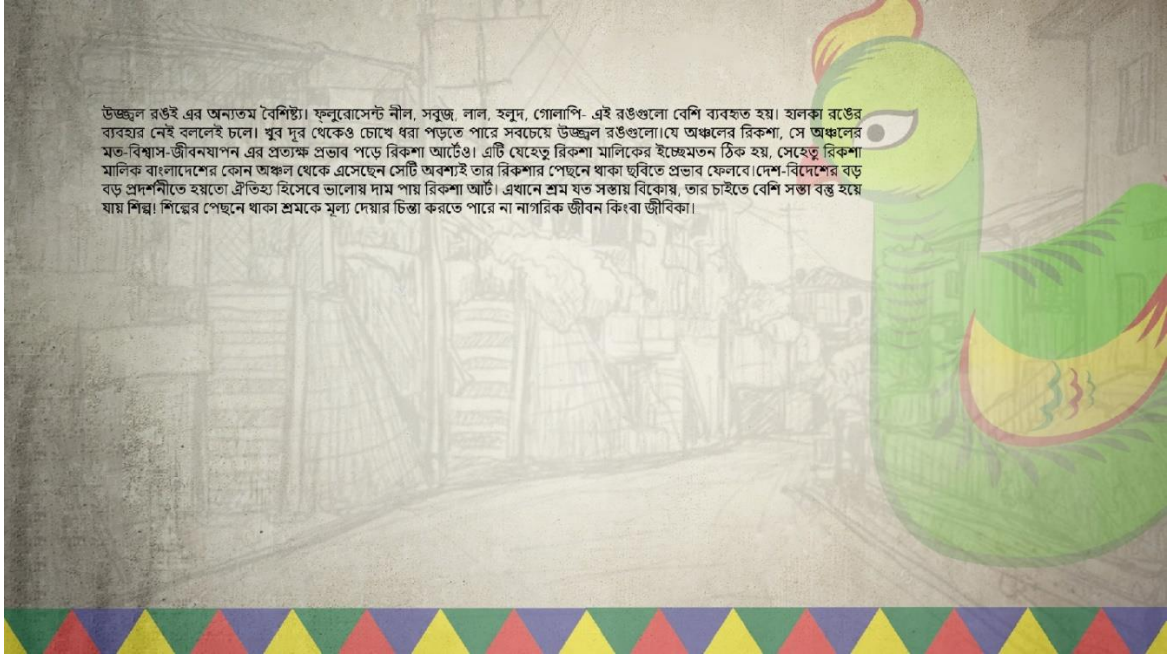 উজ্জ্বল রঙই এর অন্যতম বৈশিষ্ট্য। ফ্লুরোসেন্ট নীল, সবুজ, লাল, হলুদ, গোলাপি- এই রঙগুলো বেশি ব্যবহৃত হয়। হালকা রঙের
ব্যবহার নেই বললেই চলে। খুব দূর থেকেও চোখে ধরা পড়তে পারে সবচেয়ে উজ্জ্বল রঙগুলো।যে অঞ্চলের রিকশা, সে অঞ্চলের
মত-বিশ্বাস-জীবনযাপন এর প্রত্যক্ষ প্রভাব পড়ে রিকশা আর্টেও। এটি যেহেতু রিকশা মালিকের ইচ্ছেমতন ঠিক হয়, সেহেতু রিকশা
মালিক বাংলাদেশের কোন অঞ্চল থেকে এসেছেন সেটি অবশ্যই তার রিকশার পেছনে থাকা ছবিতে প্রভাব ফেলবে।দেশ-বিদেশের বড়
বড় প্রদর্শনীতে হয়তো ঐতিহ্য হিসেবে ভালোয় দাম পায় রিকশা আর্ট। এখানে শ্রম যত সস্তায় বিকোয়, তার চাইতে বেশি সস্তা বস্তু হয়ে
যায় শিল্প! শিল্পের পেছনে থাকা শ্রমকে মূল্য দেয়ার চিন্তা করতে পারে না নাগরিক জীবন কিংবা জীবিকা।